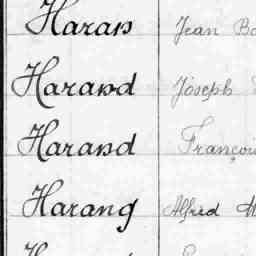 Haran Jean
Harand Joseph
Harand François
Harang Alfred